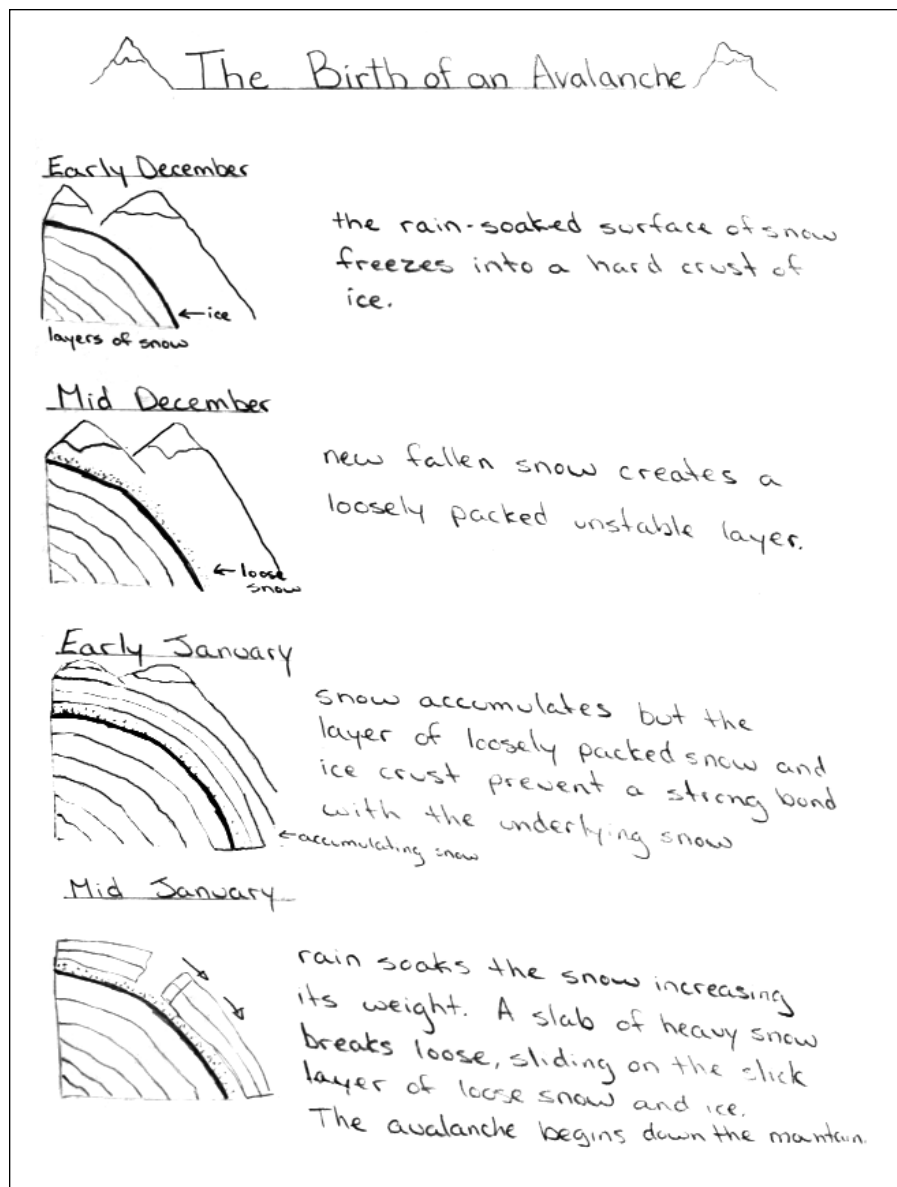 The Birth of an Avalanche
Early December
the rain-soaked surface of snow
freezes into a hard crust of
ice.
←ice
layers of snow
Mid December
new fallen snow creates a
loosely packed unstable layer.
←loose
snow
Early January
snow accumulates but the
layer of loosely packed snow and
ice crust prevent a strong bond
with the underlying snow
←accumulating snow
Mid January
rain soaks the snow increasing
its weight. A slab of heavy snow
breaks loose, sliding on the slick
layer of loose snow and ice.
The avalanche begins down the mantain.